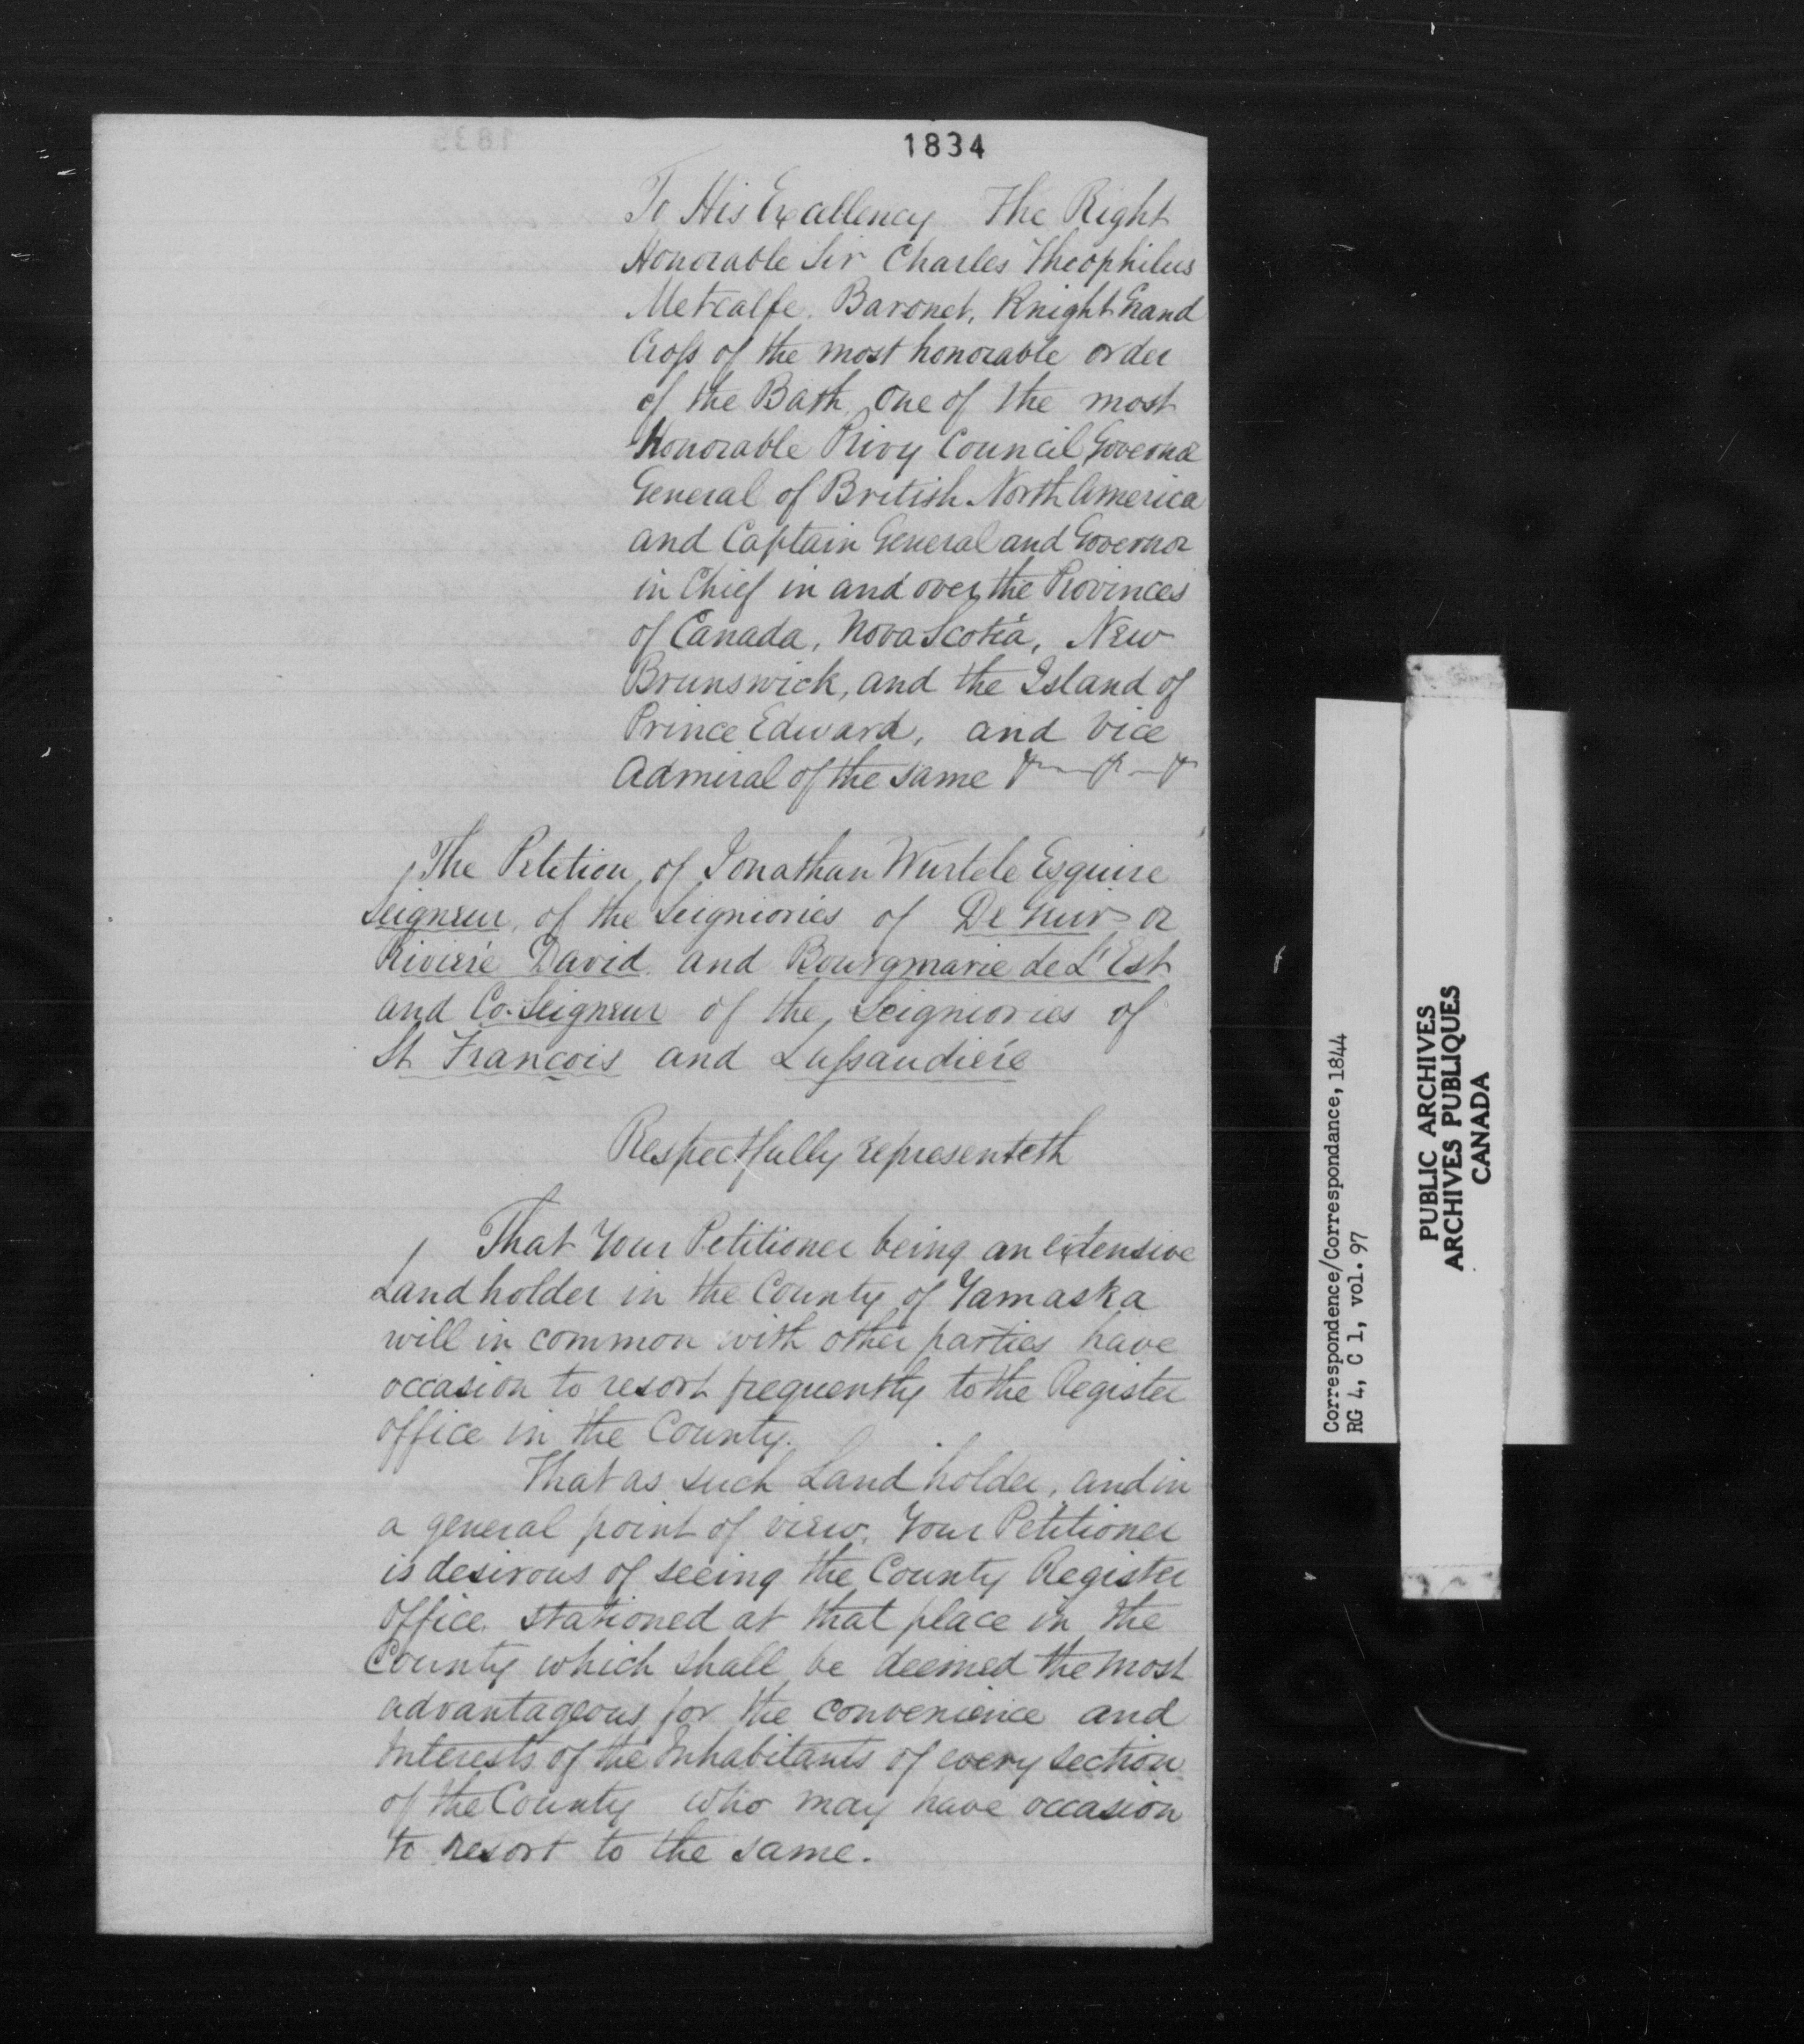 1834
To His Excellency The Right
Honorable Sir Charles Theophilus
Metcalfe. Baronet, Knight Grand
Cross of the most honorable order
of the Bath, One of the most
Honorable Privy Council Governor
General of British North America
and Captain General and Governor
in Chief in and over the Provinces
of Canada, Nova Scotia, New
Brunswick, and the Island of
Prince Edward, and Vice
Admiral of the same
The Petition of Jonathan Wurtele Esquire
Seigneur, of the Seigniories of De Guir or
Riviere David and Bourgmarie de L'Est
and Co-Seigneur of the Seigniories of
St François and Lussaudiere
Respectfully representeth
That Your Petitioner being an extensive
Land holder in the County of Yamaska
will in common with other parties have
occasion to resort frequently to the Register
office in the County.
That as such Land holder, and in
a general point of view, Your Petitioner
is desirous of seeing the County Register
Office stationed at that place in the
County which shall be deemed the most
advantageous for the convenience and
Interests of the Inhabitants of every section
of the County who may have occasion
to resort to the same.
Correspondence/Correspondance, 1844
RG 4, C 1, vol. 97
PUBLIC ARCHIVES
ARCHIVES PUBLIQUES
CANADA